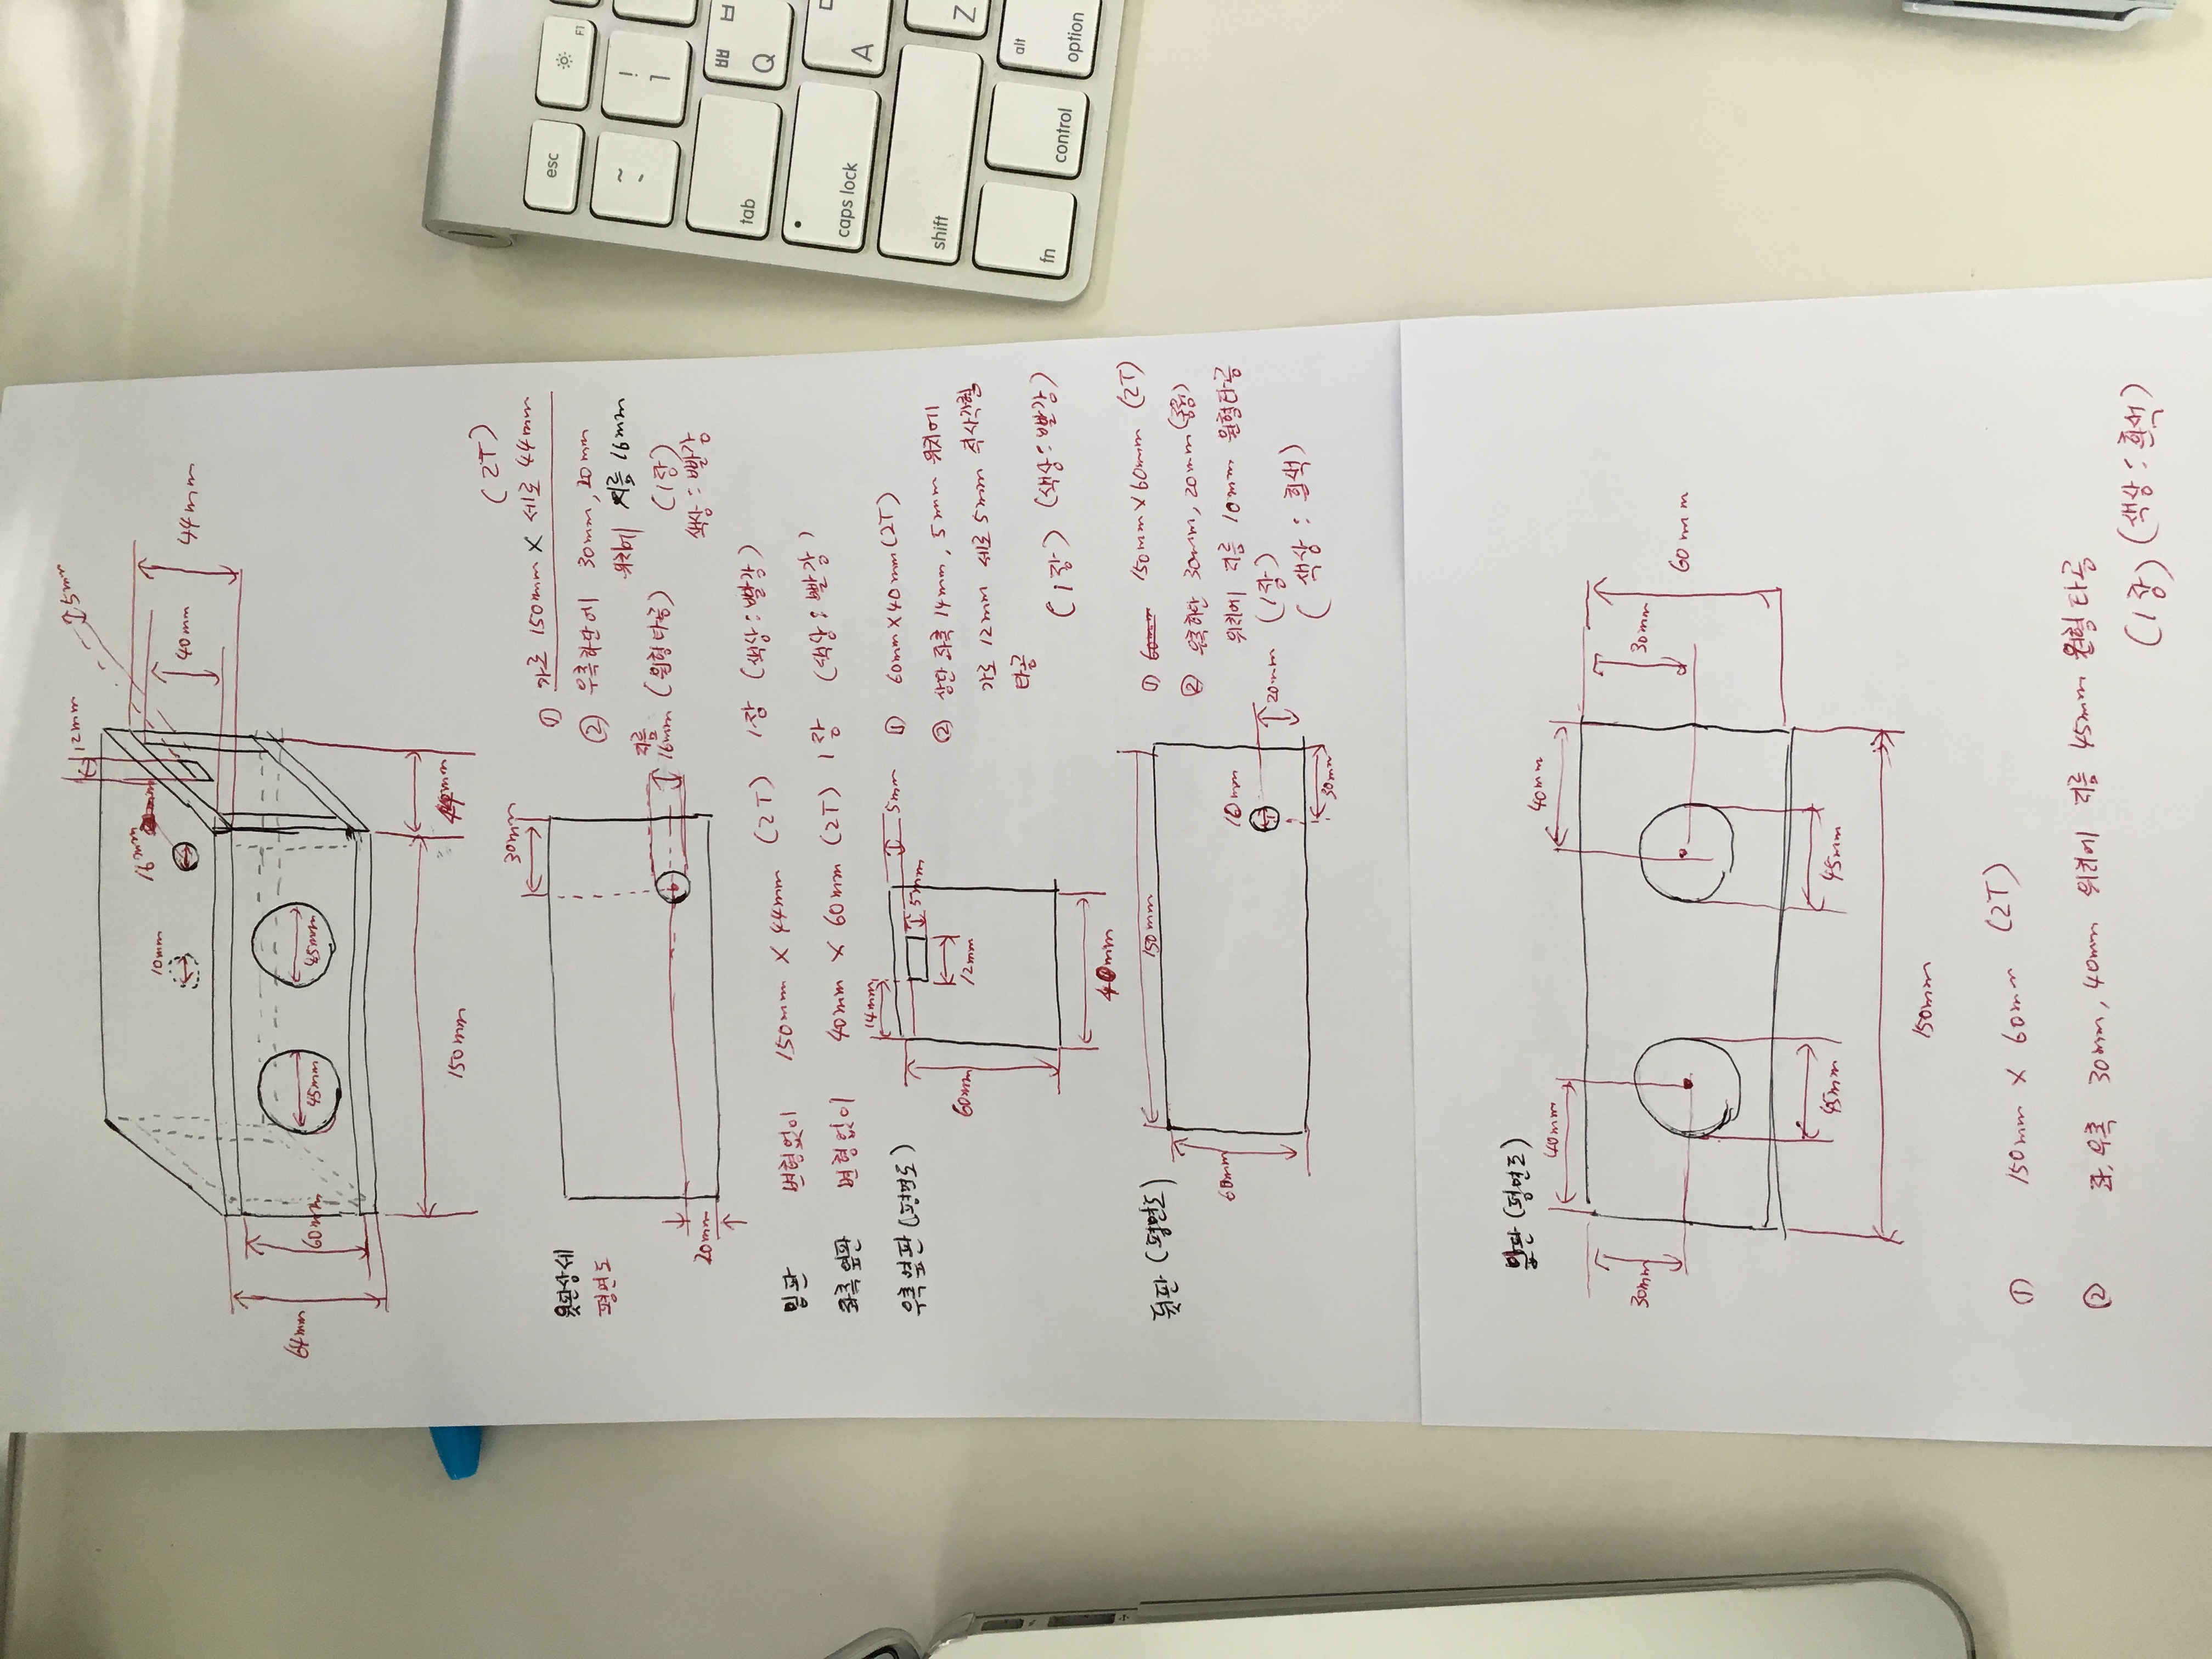 esc
F1
~
`
!
1
ㅃ
ㅂ
Q
tab
A
caps lock
Z
shift
alt
option
control
fn
12mm
5mm
44mm
40mm
16mm
10mm
45mm
45mm
60mm
64mm
150mm
윗판상세
평면도
30mm
지름
16mm
20mm
(2T)
① 가로 150mm X 세로 44mm
② 우측하단에 30mm, 20mm
위치에 지름 16mm
(원형타공) (1장)
색상 : 빨강
밑판 변형없이 150mm X 44mm (2T) 1장 (색상: 빨강)
좌측 옆판 변형없이 40mm X 60mm (2T) 1장 (색상: 빨강)
우측 옆판 (평면도)
14mm
5mm
5mm
12mm
60mm
40mm
① 60mm X 40mm (2T)
② 상단 좌측 14mm, 5mm 위치에
가로 12mm 세로 5mm 직사각형
타공
(1장) (색상: 빨강)
뒷판 (평면도)
150mm
60mm
10mm
20mm
30mm
① 60mm 150mm X 60mm (2T)
② 우측하단 30mm, 20mm
위치에 지름 10mm 원형타공
(1장)
(색상 : 흰색)
앞판 (평면도)
40mm
40mm
30mm
30mm
60mm
45mm
45mm
150mm
① 150mm X 60mm (2T)
② 좌,우측 30mm, 40mm 위치에 지름 45mm 원형타공
(1장) (색상: 흰색)